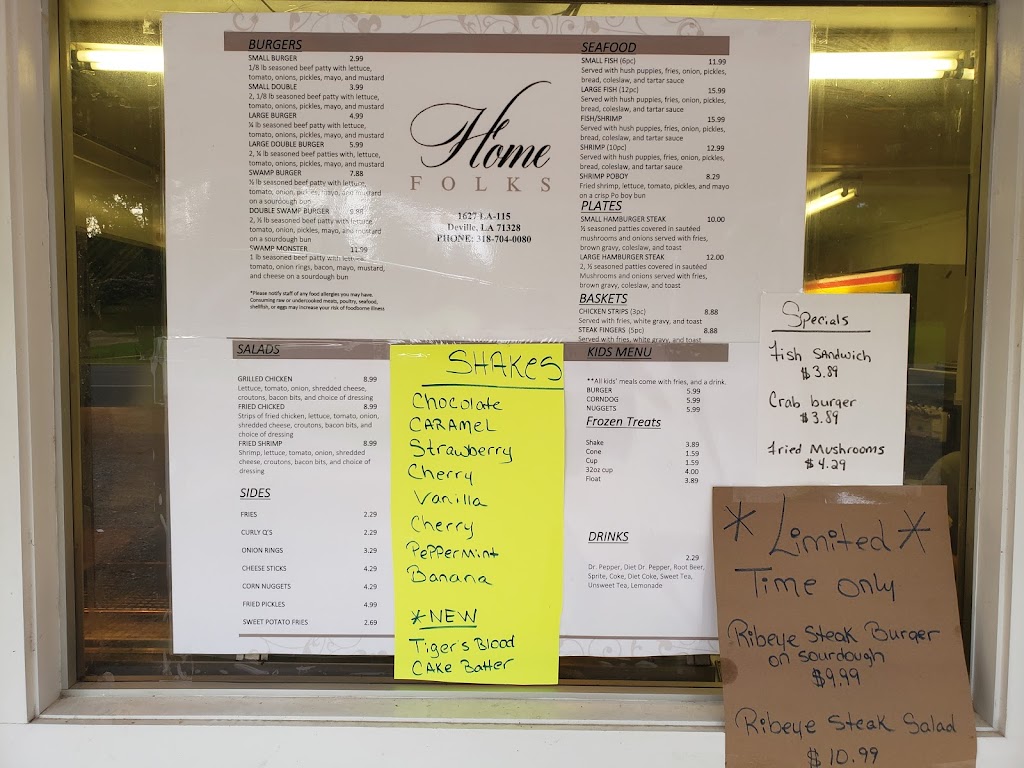 BURGERS
SMALL BURGER 2.99
1/8 lb seasoned beef patty with lettuce,
tomato, onions, pickles, mayo, and mustard
SMALL DOUBLE 3.99
2, 1/8 lb seasoned beef patty with lettuce,
tomato, onions, pickles, mayo, and mustard
LARGE BURGER 4.99
¼ lb seasoned beef patty with lettuce,
tomato, onions, pickles, mayo, and mustard
LARGE DOUBLE BURGER 5.99
2, ¼ lb seasoned beef patties with lettuce,
tomato, onions, pickles, mayo, and mustard
SWAMP BURGER 7.88
½ lb seasoned beef patty with lettuce,
tomato, onion, pickles, mayo, and mustard
on a sourdough bun
DOUBLE SWAMP BURGER 9.88
2, ½ lb seasoned beef patty with lettuce
tomato, onion, pickles, mayo, and mustard
on a sourdough bun
SWAMP MONSTER 11.99
1 lb seasoned beef patty with lettuce,
tomato, onion rings, bacon, mayo, mustard,
and cheese on a sourdough bun
*Please notify staff of any food allergies you may have.
Consuming raw or undercooked meats, poultry, seafood,
shellfish, or eggs may increase your risk of foodborne illness
Home
FOLKS
1627 LA-115
Deville, LA 71328
PHONE: 318-704-0080
SEAFOOD
SMALL FISH (6pc) 11.99
Served with hush puppies, fries, onion, pickles,
bread, coleslaw, and tartar sauce
LARGE FISH (12pc) 15.99
Served with hush puppies, fries, onion, pickles,
bread, coleslaw, and tartar sauce
FISH/SHRIMP 15.99
Served with hush puppies, fries, onion, pickles,
bread, coleslaw, and tartar sauce
SHRIMP (10pc) 12.99
Served with hush puppies, fries, onion, pickles,
bread, coleslaw, and tartar sauce
SHRIMP POBOY 8.29
Fried shrimp, lettuce, tomato, pickles, and mayo
on a crisp Po boy bun
PLATES
SMALL HAMBURGER STEAK 10.00
½ seasoned patties covered in sautéed
mushrooms and onions served with fries,
brown gravy, coleslaw, and toast
LARGE HAMBURGER STEAK 12.00
2, ½ seasoned patties covered in sautéed
Mushrooms and onions served with fries,
brown gravy, coleslaw, and toast
BASKETS
CHICKEN STRIPS (3pc) 8.88
Served with fries, white gravy, and toast
STEAK FINGERS (5pc) 8.88
Served with fries, white gravy, and toast
SALADS
GRILLED CHICKEN 8.99
Lettuce, tomato, onion, shredded cheese,
croutons, bacon bits, and choice of dressing
FRIED CHICKED 8.99
Strips of fried chicken, lettuce, tomato, onion,
shredded cheese, croutons, bacon bits, and
choice of dressing
FRIED SHRIMP 8.99
Shrimp, lettuce, tomato, onion, shredded
cheese, croutons, bacon bits, and choice of
dressing
SIDES
FRIES 2.29
CURLY Q'S 2.29
ONION RINGS 3.29
CHEESE STICKS 4.29
CORN NUGGETS 4.29
FRIED PICKLES 4.99
SWEET POTATO FRIES 2.69
SHAKES
Chocolate
CARAMEL
Strawberry
Cherry
Vanilla
Cherry
PePPermint
Banana
*NEW
Tiger's Blood
CAKe Batter
KIDS MENU
**All kids' meals come with fries, and a drink.
BURGER 5.99
CORNDOG 5.99
NUGGETS 5.99
Frozen Treats
Shake 3.89
Cone 1.59
Cup 1.59
32oz cup 4.00
Float 3.89
DRINKS
2.29
Dr. Pepper, Diet Dr. Pepper, Root Beer,
Sprite, Coke, Diet Coke, Sweet Tea,
Unsweet Tea, Lemonade
Specials
Fish Sandwich
$3.89
Crab burger
$3.89
Fried Mushrooms
$4.29
*Limited*
Time only
Ribeye Steak Burger
on sourdough
$9.99
Ribeye Steak Salad
$10.99